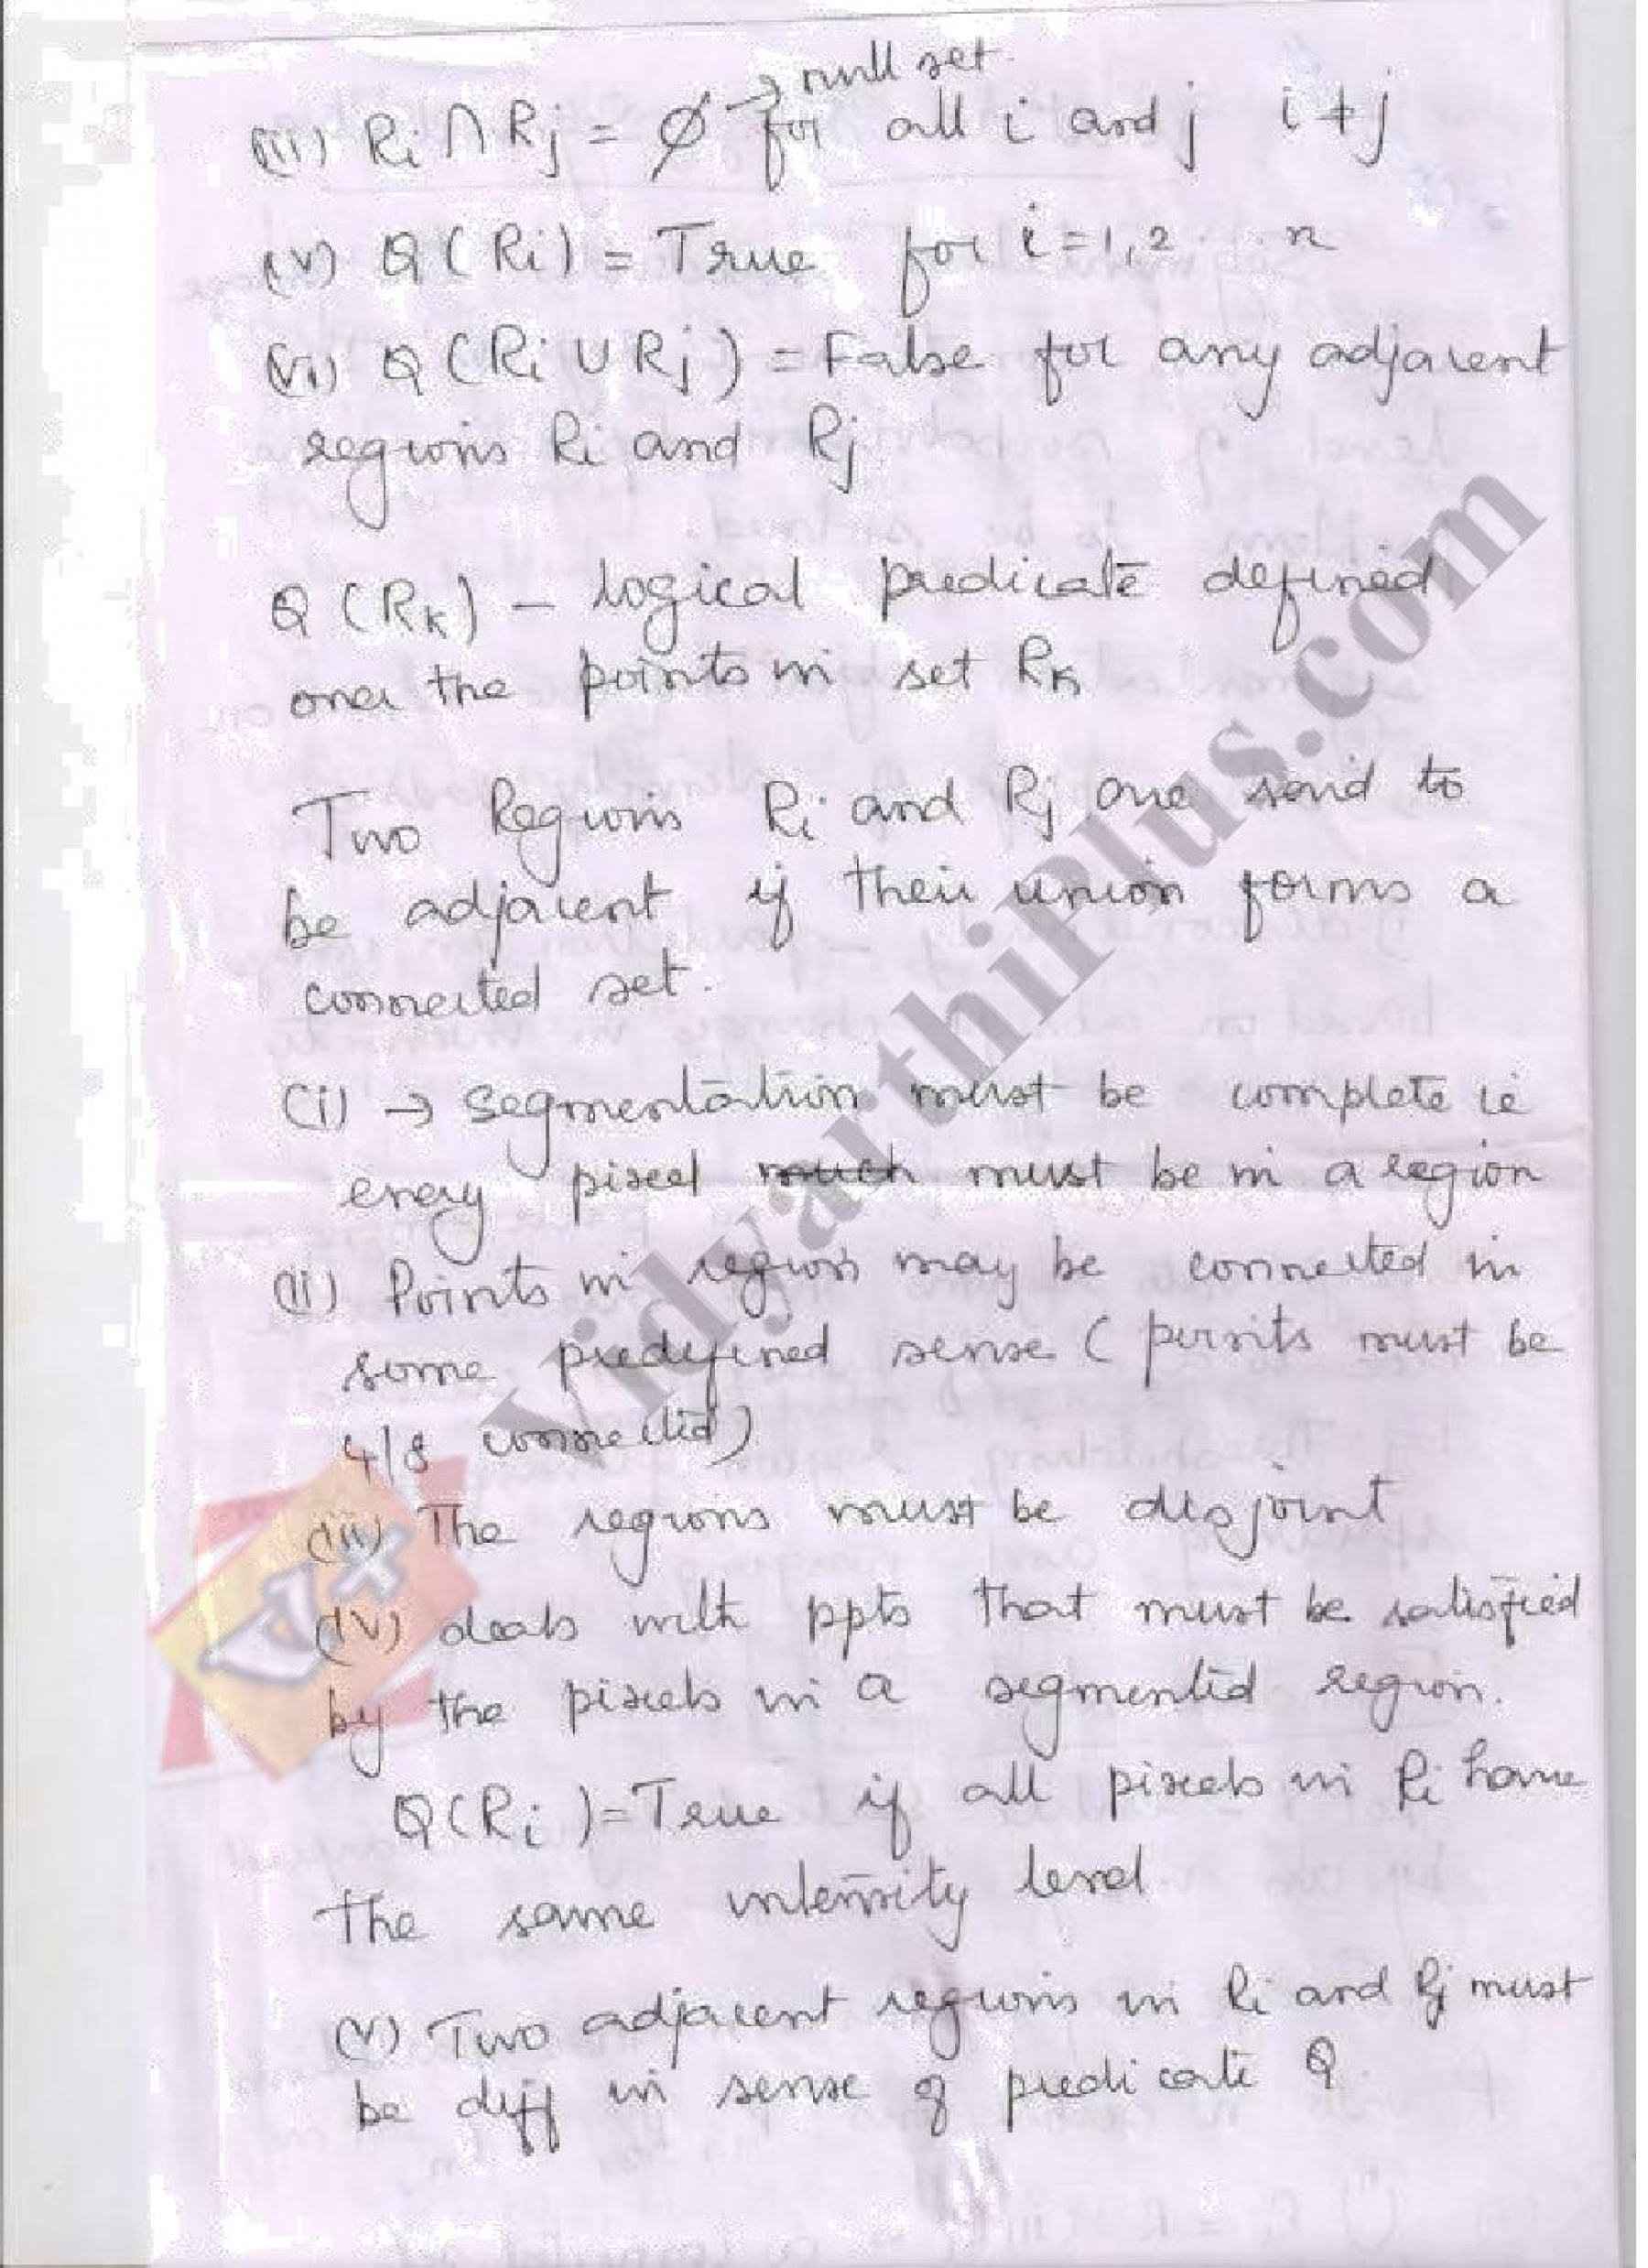 → null set
(iii) Ri ∩ Rj = ∅ for all i and j i ≠ j
(v) Q(Ri) = True for i=1,2 .. n
(vi) Q(Ri ∪ Rj) = False for any adjacent
regions Ri and Rj
Q(Rk) – logical predicate defined
over the points in set Rk
Two Regions Ri and Rj are said to
be adjacent if their union forms a
connected set.
(i) → segmentation must be complete ie
every pixel much must be in a region
(ii) Points in region may be connected in
some predefined sense (points must be
4/8 connected)
(iii) The regions must be disjoint
(iv) deals with ppts that must be satisfied
by the pixels in a segmented region.
Q(Ri) = True if all pixels in Ri have
the same intensity level
(v) Two adjacent regions in Ri and Rj must
be diff in sense of predicate Q.
VidyarthiPlus.com